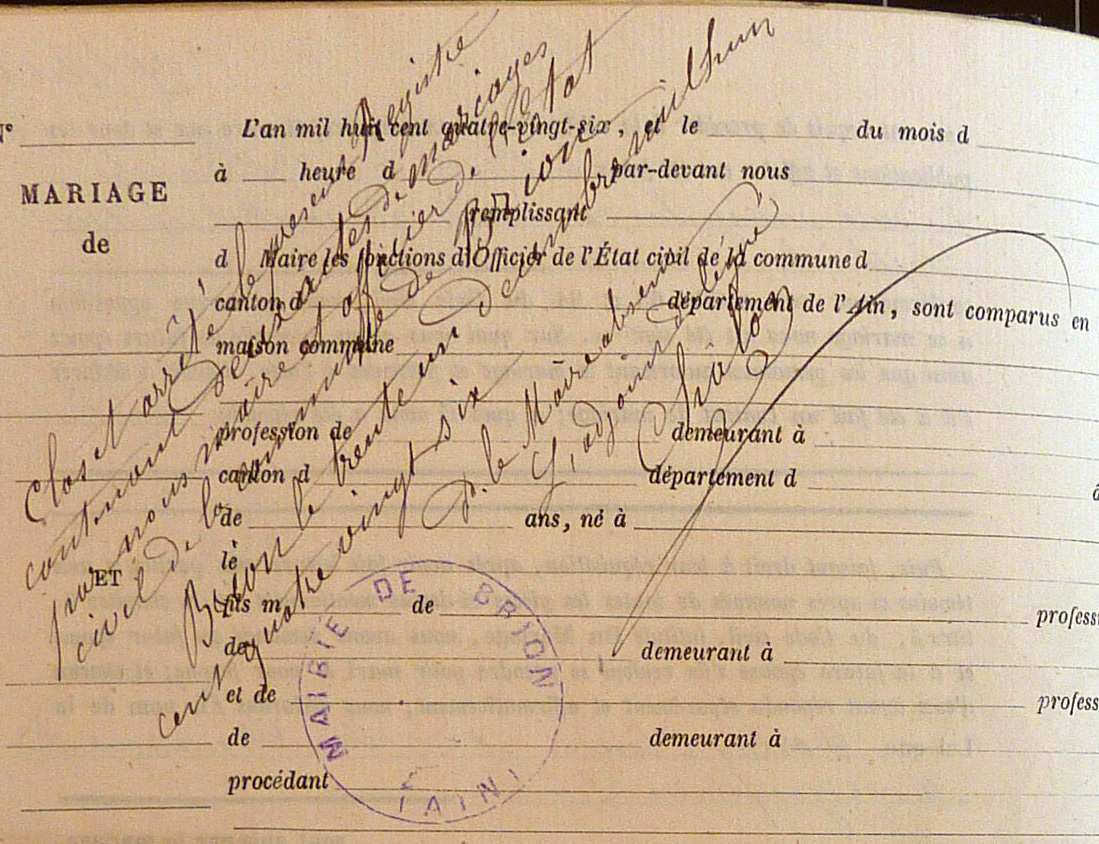 N°
MARIAGE
de
ET
L'an mil huit cent quatre-vingt-six, et le du mois d
à heure d par-devant nous
remplissant
d Maire les fonctions d'Officier de l'État civil de la commune d
canton d département de l'Ain, sont comparus en
maison commune
profession de demeurant à
canton d département d
de ans, né à
le
fils m de professi
de demeurant à
et de profess
de demeurant à
procédant
Clos et arrêté le présent Registre
contenant deux actes de mariages
par nous maire et officier de l'état
civil de la commune de Brion
Brion le trente un Décembre mil huit
cent quatre vingt six
p. le Maire absent
L'adjoint délégué
MAIRIE DE BRION
(AIN)